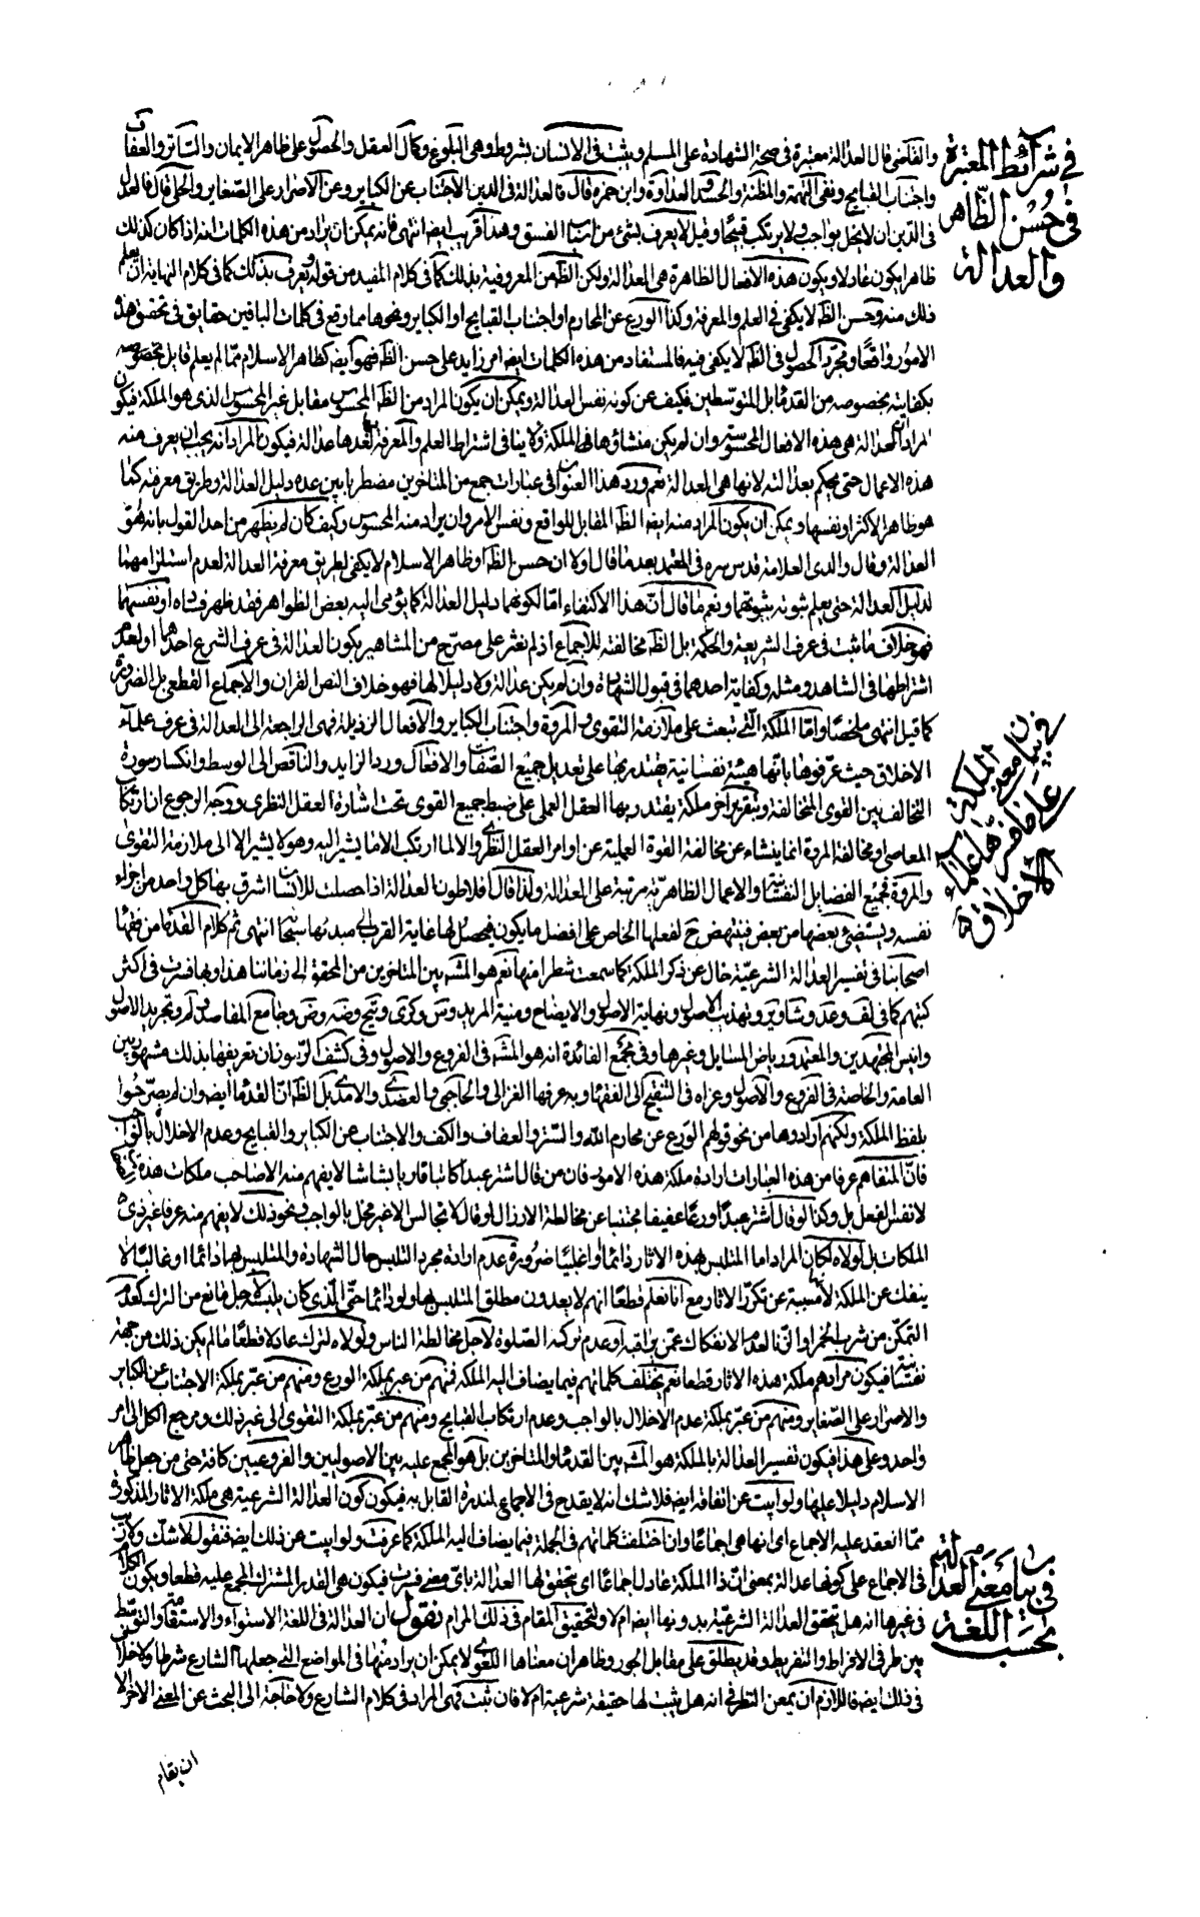 والقاضي قال العدالة معتبرة في صحة الشهادة على المسلم ويثبت في الانسان بشروط وهي البلوغ وكمال العقل والحصول على ظاهر الايمان والستر والعفاف
واجتناب القبايح ونفي التهمة والمظنة والحسد والعداوة وابن حمزه قال فالعدالة في الدين الاجتناب عن الكباير وعن الاصرار على الصغاير والحلي قال فالعدل
في الدين ان لا يخل بواجب ولا يرتكب قبيحا وقيل لا يعرف بشئ من اسباب الفسق وهذا قريب ايضا انتهى فانه يمكن ان يراد من هذه الكلمات انه اذا كان كذلك
ظاهرا يكون عادلا ويكون هذه الافعال الظاهرة هي العدالة ولكن الظ من المعروفية بذلك كما في كلام المفيد من قوله ويعرف بذلك كما في كلام النهاية ان يعلم
ذلك منه وحسن الظ لا يكفي في العلم والمعرفة وكذا الورع عن المحارم او اجتناب القبايح او الكباير ونحوها مما وقع في كلمات الباقين حقايق في تحقق هذه
الامور واقعا ومجرد الحصول في الظ لا يكفي فيه فالمستفاد من هذه الكلمات ايضا امر زايد على حسن الظ فهو ايضا كظاهر الاسلام مما لم يعلم قايل بخصوصه
بكفايته بخصوصه من القدماء بل المتوسطين فكيف عن كونه نفس العدالة ويمكن ان يكون المراد من الظ المحسوس مقابل غير المحسوس الذي هو الملكة فيكون
المراد ان العدالة هي هذه الافعال المحسوسة وان لم يكن منشاؤها الملكة ولا ينافي اشتراط العلم والمعرفة بها لعدها عدالة فيكون المراد انه يجب ان يعرف منه
هذه الاعمال حتى يحكم بعدالته لانها هي العدالة نعم ورد هذا العنوان في عبارات جمع من المتاخرين مضطربا بين عده دليل العدالة وطريق معرفته كما
هو ظاهر الاكثر او نفسها ويمكن ان يكون المراد منه ايضا الظ المقابل للواقع ونفس الامر وان يراد منه المحسوس وكيف كان لم يظهر من احد القول بانه هو
العدالة وقال والدي العلامة قدس سره في المعتمد بعد ما قال اولا ان حسن الظ او ظاهر الاسلام لا يكفي لطريق معرفة العدالة لعدم استلزامهما
لدليل العدالة حتى يعلم ثبوته بثبوتهما ونعم ما قال ان هذا الاكتفاء اما لكونهما دليل العدالة كما يؤمي اليه بعض الظواهر فقد ظهر فساده او نفسهما
فهو خلاف ما ثبت في عرف الشريعة والحكمة بل الظ مخالفته للاجماع اذ لم نعثر على مصرح من المشاهير بكون العدالة في عرف الشرع احدهما او لعدم
اشتراطها في الشاهد ومثله وكفاية احدهما في قبول الشهادة وان لم يكن عدالة ولا دليلا لها فهو خلاف النص القران والاجماع القطعي بل الضرورة
كما قيل انتهى ملخصا واما الملكة التي تبعث على ملازمة التقوى والمروة واجتناب الكباير والافعال الرذيلة فهي الراجعة الى العدالة في عرف علماء
الاخلاق حيث عرفوها بانها هيئة نفسانية يقتدر بها على تعديل جميع الصفات والافعال ورد الزايد والناقص الى الوسط وانكسار سورة
التخالف بين القوى المتخالفة وبتقرير اخر ملكة يقتدر بها العقل العملي على ضبط جميع القوى تحت اشارة العقل النظري ووجه الرجوع ان ارتكاب
المعاصي او مخالفة المروة انما ينشاء عن مخالفة القوة العملية عن اوامر العقل النظري والا لما ارتكب الا ما يشير اليه وهو لا يشير الا الى ملازمة التقوى
والمروة فجميع الفضايل النفسانية والاعمال الظاهرية مرتبة على العدالة ولذا قال افلاطون العدالة اذا حصلت للانسان اشرق بها كل واحد من اجزاء
نفسه ويستضئ بعضها من بعض فينتهض ح لفعلها الخاص على افضل ما يكون فيحصل لها غاية القرب الى مبدئها سبحانه انتهى ثم كلام القدماء من فقهاء
اصحابنا في تفسير العدالة الشرعية خال عن ذكر الملكة كما سمعت شطرا منها نعم هو المش بين المتاخرين من المحقق الى زماننا هذا وبها فسرت في اكثر
كتبهم كما في لف وعد وشاد وير وتهذيب الاصول ونهاية الاصول والايضاح ومنية المريد وس وكرى وتنقيح وضه وض وجامع المقاصد ولم وتجريد الاصول
وانيس المجتهدين والمعتمد ورياض المسايل وغيرها وفي مجمع الفائدة انه هو المش في الفروع والاصول وفي كشف الرموز ان تعريفها بذلك مشهور بين
العامة والخاصة في الفروع والاصول وعزاه في التنقيح الى الفقهاء وبه عرفها الغزالي والحاجبي والعضدي والامدي بل الظ ان القدماء ايضا وان لم يصرحوا
بلفظ الملكة ولكنهم ارادوها من نحو قولهم الورع عن محارم الله والستر والعفاف والكف والاجتناب عن الكباير والقبايح وعدم الاخلال بالواجب
فان المتفاهم عرفا من هذه العبارات ارادة ملكة هذه الامور فان من قال اشتر عبدا كاتبا قاريا بشاشا لا يفهم منه الا صاحب ملكات هذه
لا نفس الفعل بل وكذا لو قال اشتر عبدا ورعا عفيفا مجتنبا عن مخالطة الارذال او قال لا تجالس الا غير مخل بالواجب ونحو ذلك لا يفهم منه عرفا غير ذي
الملكات بل لولاه لكان المراد اما المتلبس بهذه الاثار دائما او اغلبيا ضرورة عدم ارادة مجرد التلبس حال الشهادة والمتلبس بها دائما او غالبا لا
ينفك عن الملكة لانها مسببة عن تكرر الاثار مع انا نعلم قطعا انهم لا يعدون مطلق المتلبس بها ولو دائما حتى الذي كان تلبسه لاجل مانع من الترك كعدم
التمكن من شرب الخمر او الزنا لعدم الانفكاك عمن يراقبه او عدم تركه الصلوة لاجل مخالطة الناس ولولاه لترك عادلا قطعا ما لم يكن ذلك من جهة
نفسانية فيكون مرادهم ملكة هذه الاثار قطعا نعم يختلف كلماتهم فيما يضاف اليه الملكة فمنهم من عبر بملكة الورع ومنهم من عبر بملكة الاجتناب عن الكباير
والاصرار على الصغاير ومنهم من عبر بملكة عدم الاخلال بالواجب وعدم ارتكاب القبايح ومنهم من عبر بملكة التقوى الى غير ذلك ومرجع الكل الى امر
واحد وعلى هذا فيكون تفسير العدالة بالملكة هو المش بين القدماء والمتاخرين بل هو المجمع عليه بين الاصوليين والفروعيين كافة حتى من جعل ظاهر
الاسلام دليلا عليها ولو ابيت عن اتفاقه ايضا فلا شك انه لا يقدح في الاجماع لندرة القايل به فيكون كون العدالة الشرعية هي ملكة الاثار المذكورة
مما انعقد عليه الاجماع اي انها هي اجماعا وان اختلفت كلماتهم في الجملة فيما يضاف اليه الملكة كما عرفت ولو ابيت عن ذلك ايضا فنقول لا شك ولا ريب
في الاجماع على كونها عدالة بمعنى ان ذا الملكة عادل اجماعا اي يتحقق لها العدالة باي معنى فسرت فيكون هي القدر المشترك المجمع عليه قطعا ويكون الكلام
في غيرها انه هل يتحقق العدالة الشرعية بدونها ايضا ام لا ولتحقيق المقام في ذلك المرام نقول ان العدالة في اللغة الاستواء والاستقامة والتوسط
بين طرفي الافراط والتفريط وقد يطلق على مقابل الجور وظاهر ان معناها اللغوي لا يمكن ان يراد منها في المواضع التي جعلها الشارع شرطا ولا خلاف
في ذلك ايضا فاللازم ان يمعن النظر في انه هل يثبت لها حقيقة شرعية ام لا فان ثبت فهي المراد في كلام الشارع ولا حاجة الى البحث عن المعنى الاخر والا
ان يقام
في شرائط المعتبرة
في حسن الظاهر
والعدالة
في بيان معنى الملكة
على ما فسرها علماء
الاخلاق
في بيان معنى العدالة
بحسب اللغة